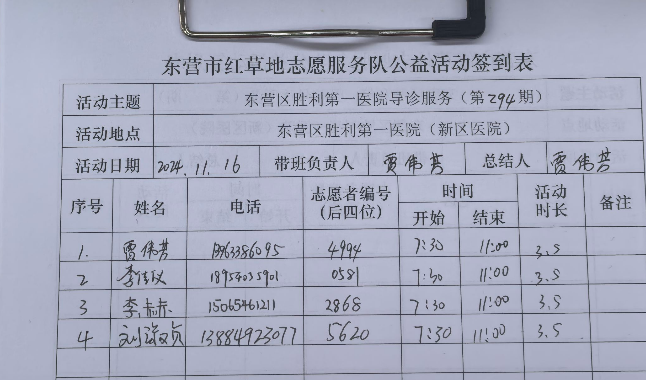 东营市红草地志愿服务队公益活动签到表
活动主题 东营区胜利第一医院导诊服务（第294期）
活动地点 东营区胜利第一医院（新区医院）
活动日期 2024.11.16 带班负责人 贾伟芳 总结人 贾伟芳
序号 姓名 电话 志愿者编号（后四位） 时间 开始 结束 活动时长 备注
1. 贾伟芳 4994 7:30 11:00 3.5
2 18954035901 0581 7:30 11:00 3.5
3 李赤赤 15065461211 2868 7:30 11:00 3.5
4 13884923077 5620 7:30 11:00 3.5